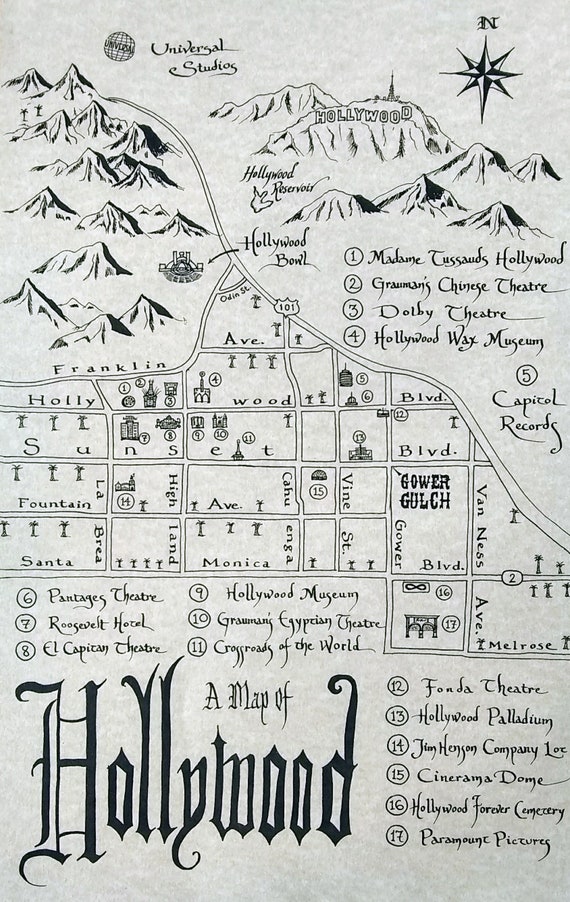 N
UNIVERSAL
Universal
Studios
HOLLYWOOD
Hollywood
Reservoir
Hollywood
Bowl
Odin St.
101
1 Madame Tussauds Hollywood
2 Grauman's Chinese Theatre
3 Dolby Theatre
4 Hollywood Wax Museum
5
Capitol
Records
Franklin Ave.
1 2 3 4 5
Hollywood Blvd.
6 12
7 8 9 10 11 13
Sunset Blvd.
GOWER
GULCH
14 15
Fountain Ave.
La Brea
Highland
Cahuenga
Vine St.
Gower
Van Ness Ave.
Santa Monica Blvd.
2
16
17
Melrose
6 Pantages Theatre
7 Roosevelt Hotel
8 El Capitan Theatre
9 Hollywood Museum
10 Grauman's Egyptian Theatre
11 Crossroads of the World
A Map of
Hollywood
12 Fonda Theatre
13 Hollywood Palladium
14 Jim Henson Company Lot
15 Cinerama Dome
16 Hollywood Forever Cemetery
17 Paramount Pictures